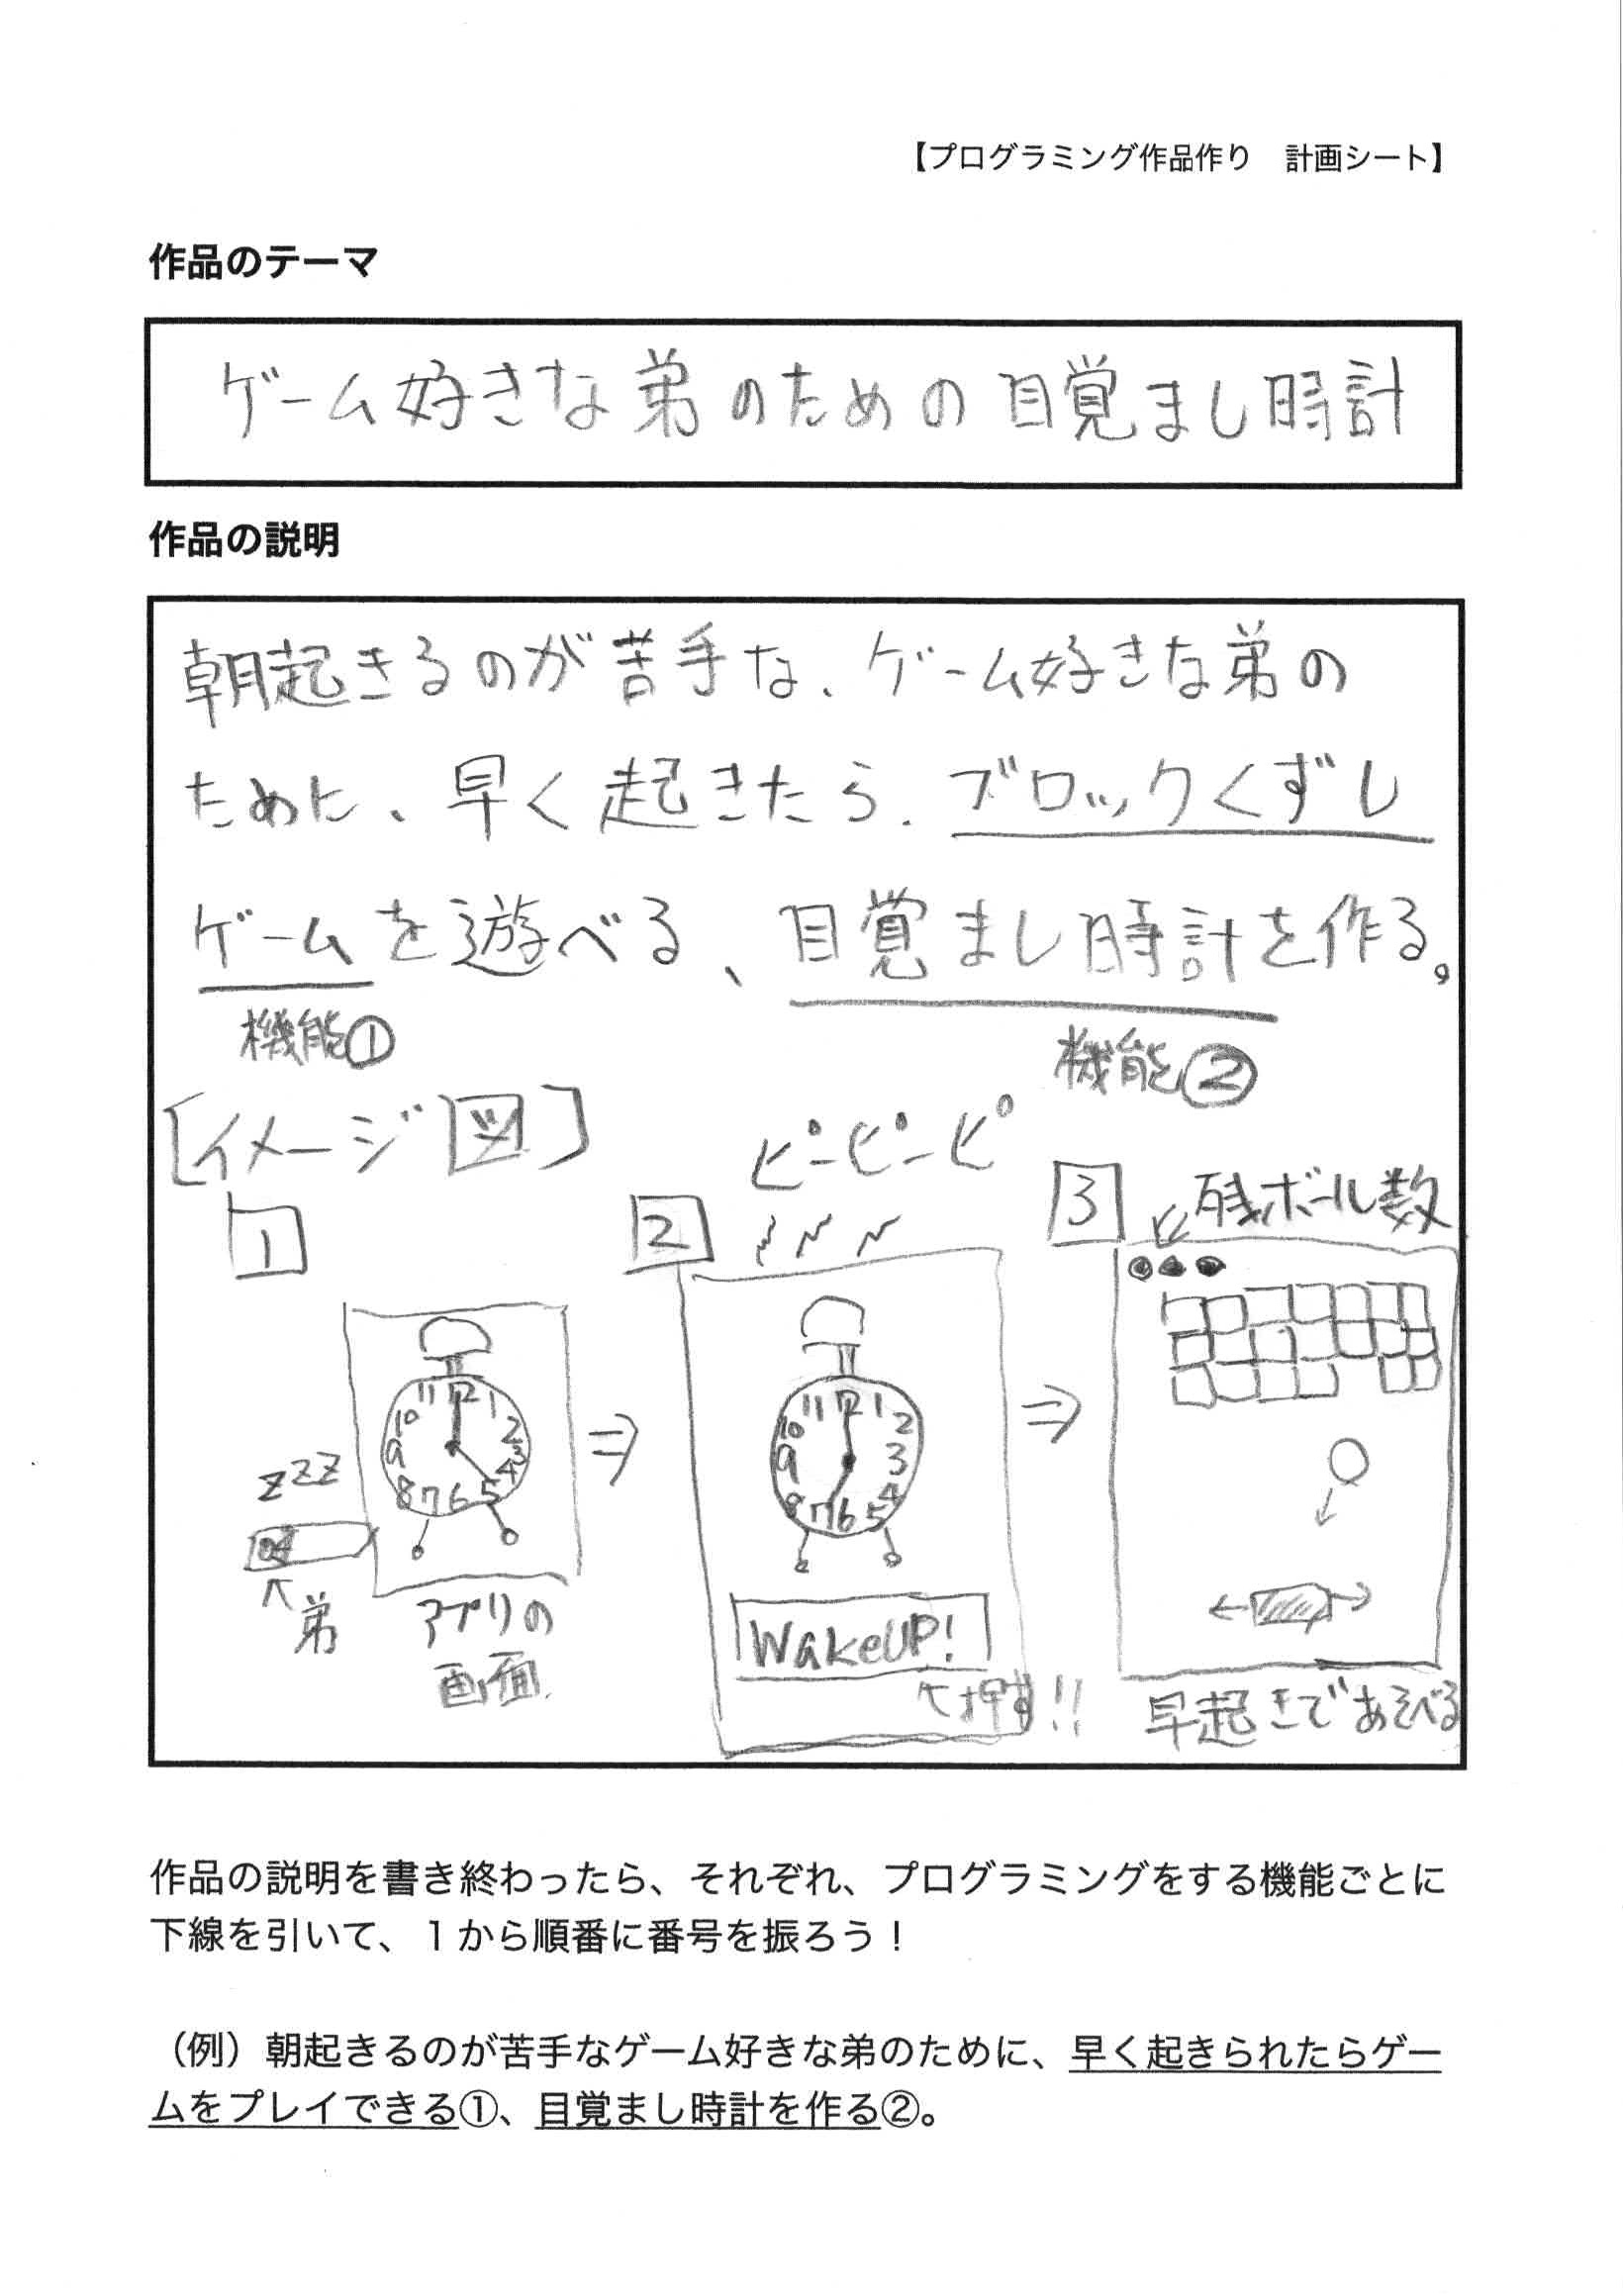 【プログラミング作品作り　計画シート】
作品のテーマ
ゲーム好きな弟のための目覚まし時計
作品の説明
朝起きるのが苦手な、ゲーム好きな弟の
ために、早く起きたら、ブロックくずし
ゲームを遊べる、目覚まし時計を作る。
機能①
機能②
[イメージ図]
ピーピーピ
1
2
3
残ボール数
11 12 1
10 2
9 3
8 7 6 5 4
zzz
弟
アプリの
画面
11 12 1
10 2
9 3
8 7 6 5 4
WakeUP!
押す!!
早起きであそべる
作品の説明を書き終わったら、それぞれ、プログラミングをする機能ごとに
下線を引いて、１から順番に番号を振ろう！
（例）朝起きるのが苦手なゲーム好きな弟のために、早く起きられたらゲー
ムをプレイできる①、目覚まし時計を作る②。